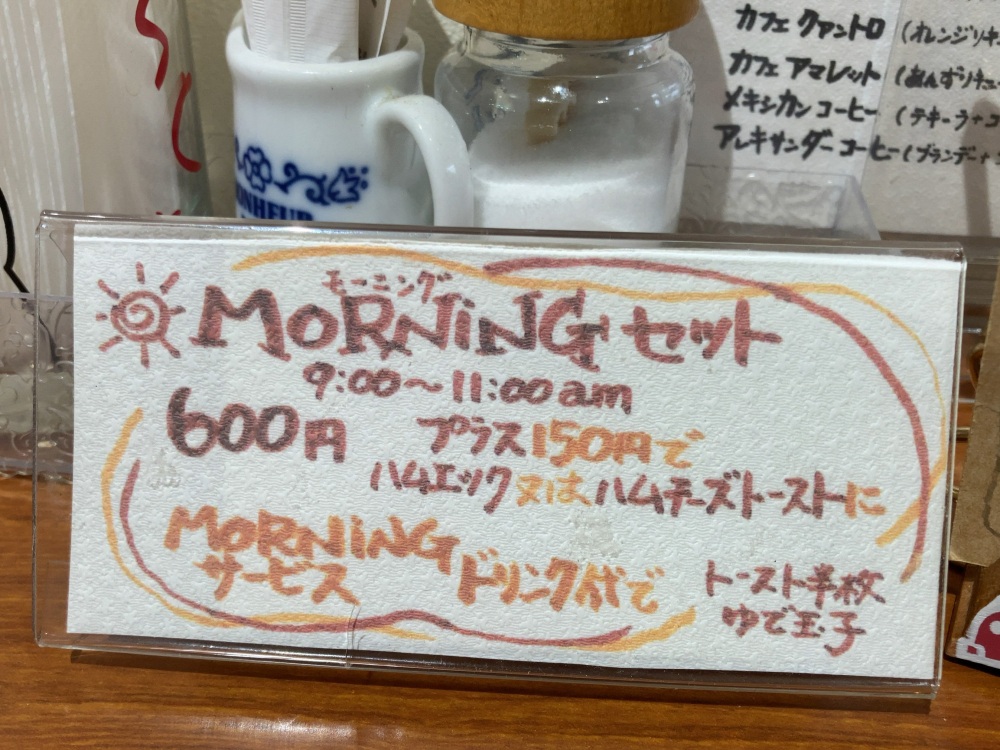 カフェ クァントロ (オレンジリキ
カフェ アマレット (あんずリキュ
メキシカンコーヒー (テキーラ+コ
アレキサンダーコーヒー (ブランデー+
BONHEUR
モーニング
MORNiNG セット
9:00〜11:00am
600円 プラス150円で
ハムエッグ 又は ハムチーズトーストに
MORNiNG
サービス ドリンク代で
トースト半枚
ゆで玉子